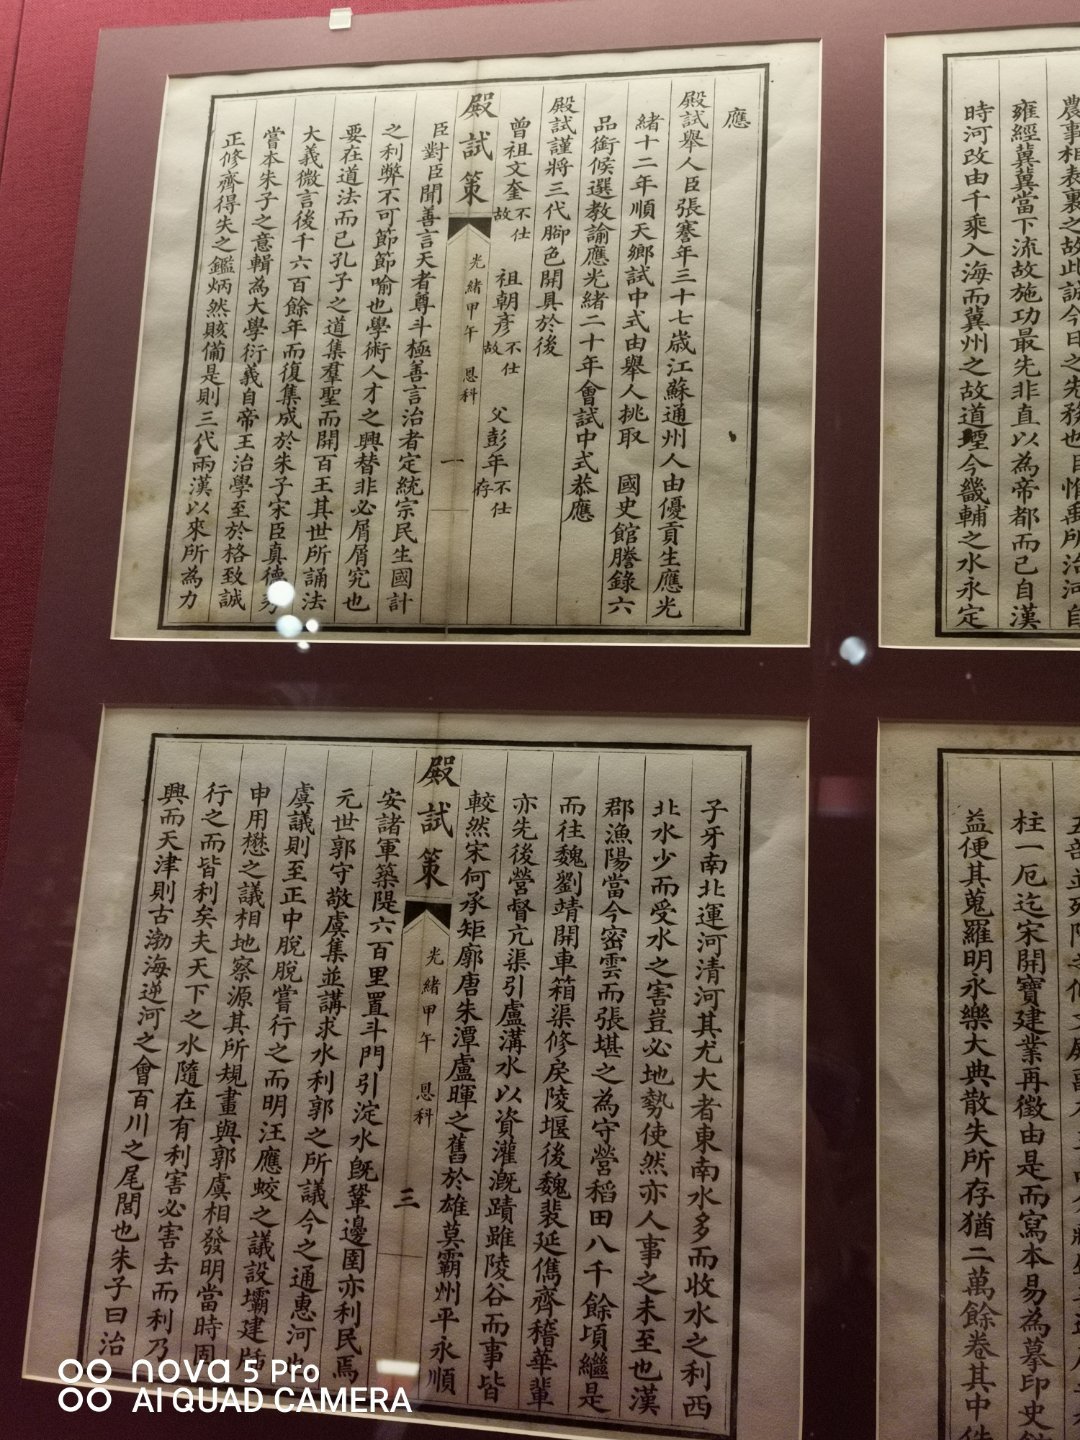 應
殿試舉人臣張謇年三十七歲江蘇通州人由優貢生應光
緒十二年順天鄉試中式由舉人挑取 國史館謄錄六
品銜候選教諭應光緒二十年會試中式恭應
殿試謹將三代腳色開具於後
曾祖文奎不仕故 祖朝彥不仕故 父彭年不仕存
殿試策 光緒甲午 恩科 一
臣對臣聞善言天者尊斗極善言治者定統宗民生國計
之利弊不可節節喻也學術人才之興替非必屑屑究也
要在道法而已孔子之道集羣聖而開百王其世所誦法
大義微言後千六百餘年而復集成於朱子宋臣真德秀
嘗本朱子之意輯為大學衍義自帝王治學至於格致誠
正修齊得失之鑑炳然賅備是則三代兩漢以來所為力
農事相表裏之故此誠今日之先務也臣惟禹所治河自
雍經冀冀當下流故施功最先非直以為帝都而已自漢
時河改由千乘入海而冀州之故道堙今畿輔之水永定
子牙南北運河清河其尤大者東南水多而收水之利西
北水少而受水之害豈必地勢使然亦人事之未至也漢
郡漁陽當今密雲而張堪之為守營稻田八千餘頃繼是
而往魏劉靖開車箱渠修戾陵堰後魏裴延儁齊稽華輩
亦先後營督亢渠引盧溝水以資灌溉蹟雖陵谷而事皆
較然宋何承矩廓唐朱潭盧暉之舊於雄莫霸州平永順
安諸軍築隄六百里置斗門引淀水既鞏邊圉亦利民焉
殿試策 光緒甲午 恩科 三
元世郭守敬虞集並講求水利郭之所議今之通惠河也
虞議則至正中脫脫嘗行之而明汪應蛟之議設壩建牐
申用懋之議相地察源其所規畫與郭虞相發明當時固
行之而皆利矣夫天下之水隨在有利害必害去而利乃
興而天津則古渤海逆河之會百川之尾閭也朱子曰治
柱一厄迄宋開寶建業再徵由是而寫本易為摹印史館
益便其蒐羅明永樂大典散失所存猶二萬餘卷其中佚
nova 5 Pro
AI QUAD CAMERA